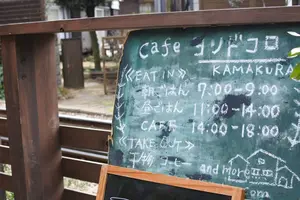 Cafe ヨリドコロ
KAMAKURA
《EAT IN》
朝ごはん 7:00-9:00
昼ごはん 11:00-14:00
CAFE 14:00-18:00
《TAKE OUT》
干物 コーヒー
and more